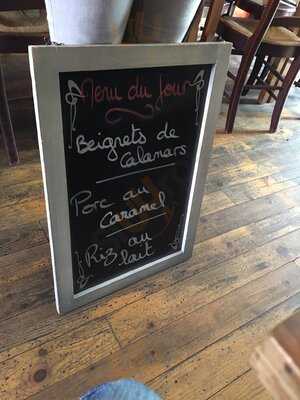 Menu du Jour
Beignets de
Calamars
Porc au
Caramel
Riz au
lait